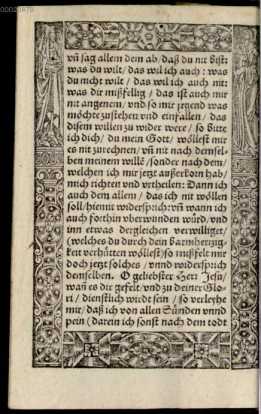 vñ sag allem dem ab/ daß du nit bist:
was du wilt/ das wil ich auch: was
du nicht wilt/ das wil ich auch nit:
was dir mißfellig/ das ist auch mir
nit angenem/ vnd so mir jrgend was
möchte zustehen vnd einfallen/ das
disem willen zu wider were/ so bitte
ich dich/ du mein Gott/ wöllest mir
es nit zurechnen/ vñ nit nach demsel-
ben meinem wille/ sonder nach dem/
welchen ich mir jetzt außerkorn hab/
mich richten vnd vrtheilen: Dann ich
auch dem allem/ das ich nit wöllen
soll hiemit widersprich: vñ wann ich
auch forthin vberwunden würd/ vnd
inn etwas dergleichen verwilliget/
(welches du durch dein Barmhertzig-
keit verhütten wöllest) so mißfelt mir
doch jetzt solches/ vnnd widersprich
demselben. O geliebster Herr Jesu/
wañ es dir gefelt/ vnd zu deiner Glo-
ri/ dienstlich wirdt sein/ so verleyhe
mir/ daß ich von allen Sünden vnnd
pein (darein ich sonst nach dem todt